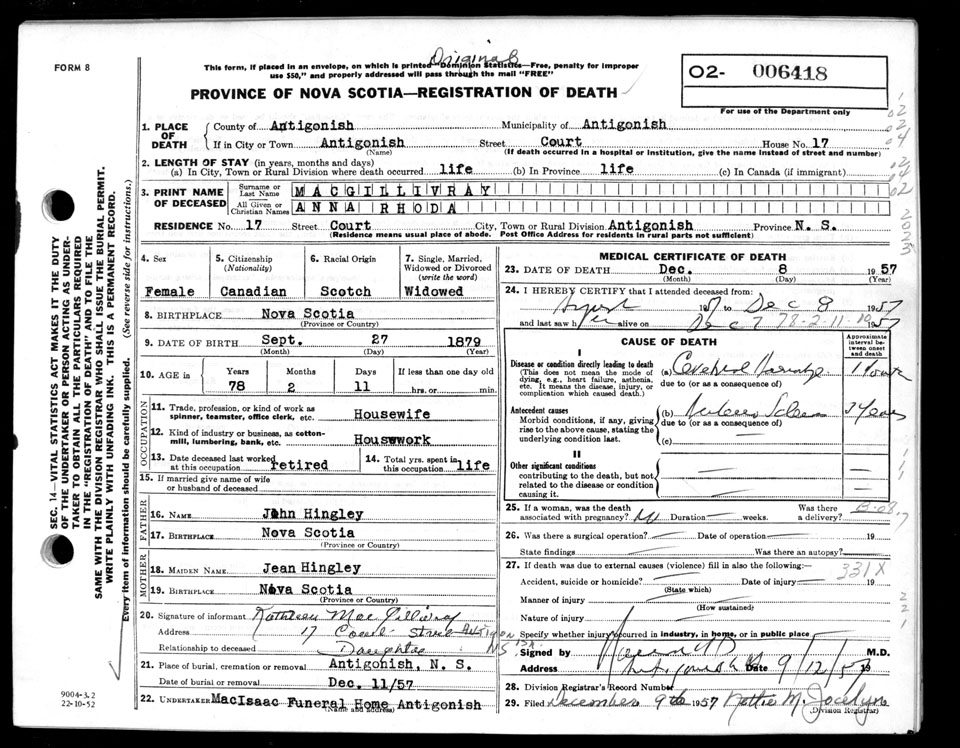 Original
FORM 8
This form, if placed in an envelope, on which is printed "Dominion Statistics—Free, penalty for improper
use $50," and properly addressed will pass through the mail "FREE"
O2- 006418
For use of the Department only
PROVINCE OF NOVA SCOTIA—REGISTRATION OF DEATH
1. PLACE OF DEATH
County of Antigonish Municipality of Antigonish
If in City or Town Antigonish Street Court House No. 17
(Name) (If death occurred in a hospital or institution, give the name instead of street and number)
2. LENGTH OF STAY (in years, months and days)
(a) In City, Town or Rural Division where death occurred life (b) In Province life (c) In Canada (if immigrant)
3. PRINT NAME OF DECEASED
Surname or Last Name MACGILLIVRAY
All Given or Christian Names ANNA RHODA
RESIDENCE No. 17 Street Court City, Town or Rural Division Antigonish Province N. S.
(Residence means usual place of abode. Post Office Address for residents in rural parts not sufficient)
4. Sex
Female
5. Citizenship (Nationality)
Canadian
6. Racial Origin
Scotch
7. Single, Married, Widowed or Divorced (write the word)
Widowed
8. BIRTHPLACE Nova Scotia
(Province or Country)
9. DATE OF BIRTH Sept. 27 1879
(Month) (Day) (Year)
10. AGE in Years Months Days If less than one day old
78 2 11 hrs. or min.
OCCUPATION
11. Trade, profession, or kind of work as spinner, teamster, office clerk, etc. Housewife
12. Kind of industry or business, as cotton-mill, lumbering, bank, etc. Housework
13. Date deceased last worked at this occupation retired
14. Total yrs. spent in this occupation life
15. If married give name of wife or husband of deceased
FATHER
16. NAME John Hingley
17. BIRTHPLACE Nova Scotia
(Province or Country)
MOTHER
18. MAIDEN NAME Jean Hingley
19. BIRTHPLACE Nova Scotia
(Province or Country)
20. Signature of informant Kathleen MacGillivray
Address 17 Court Street Antigonish
Relationship to deceased Daughter N.S.
21. Place of burial, cremation or removal Antigonish, N. S.
Date of burial or removal Dec. 11/57
22. UNDERTAKER MacIsaac Funeral Home Antigonish
(Name and address)
MEDICAL CERTIFICATE OF DEATH
23. DATE OF DEATH Dec. 8 1957
(Month) (Day) (Year)
24. I HEREBY CERTIFY that I attended deceased from:
57 to Dec 8 1957
and last saw her alive on Dec 7 78-2-11 1957
CAUSE OF DEATH
Approximate interval between onset and death
I
Disease or condition directly leading to death
(This does not mean the mode of dying, e.g., heart failure, asthenia, etc. It means the disease, injury, or complication which caused death.)
(a) Cerebral
due to (or as a consequence of)
Antecedent causes
Morbid conditions, if any, giving rise to the above cause, stating the underlying condition last.
(b)
due to (or as a consequence of)
(c)
II
Other significant conditions
contributing to the death, but not related to the disease or condition causing it.
25. If a woman, was the death associated with pregnancy? No Duration weeks. Was there a delivery?
26. Was there a surgical operation? Date of operation 19
State findings Was there an autopsy?
27. If death was due to external causes (violence) fill in also the following:
331X
Accident, suicide or homicide? Date of injury 19
(State which)
Manner of injury
(How sustained)
Nature of injury
Specify whether injury occurred in industry, in home, or in public place
Signed by M.D.
Address Antigonish Date 9/12/57 19
28. Division Registrar's Record Number
29. Filed December 9th 1957 Nettie M. Jocelyn
(Division Registrar)
SEC. 14—VITAL STATISTICS ACT MAKES IT THE DUTY
OF THE UNDERTAKER OR PERSON ACTING AS UNDER-
TAKER TO OBTAIN ALL THE PARTICULARS REQUIRED
IN THE "REGISTRATION OF DEATH" AND TO FILE THE
SAME WITH THE DIVISION REGISTRAR WHO SHALL ISSUE THE BURIAL PERMIT.
WRITE PLAINLY WITH UNFADING INK. THIS IS A PERMANENT RECORD.
Every item of information should be carefully supplied. (See reverse side for instructions.)
9004-3.2
22-10-52